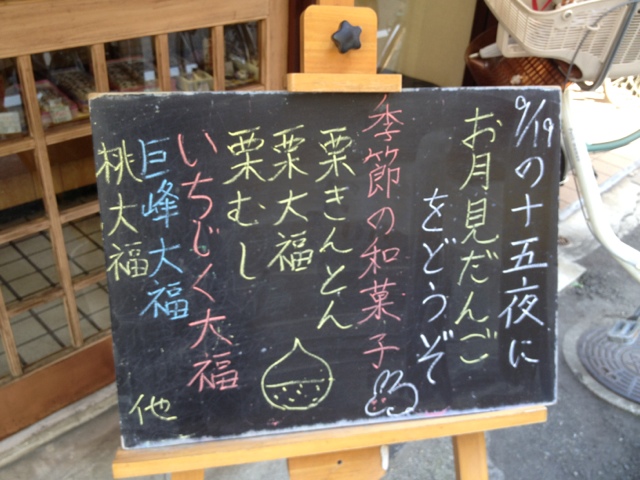 9/19の十五夜に
お月見だんご
をどうぞ
季節の和菓子
栗きんとん
栗大福
栗むし
いちじく大福
巨峰大福
桃大福
他